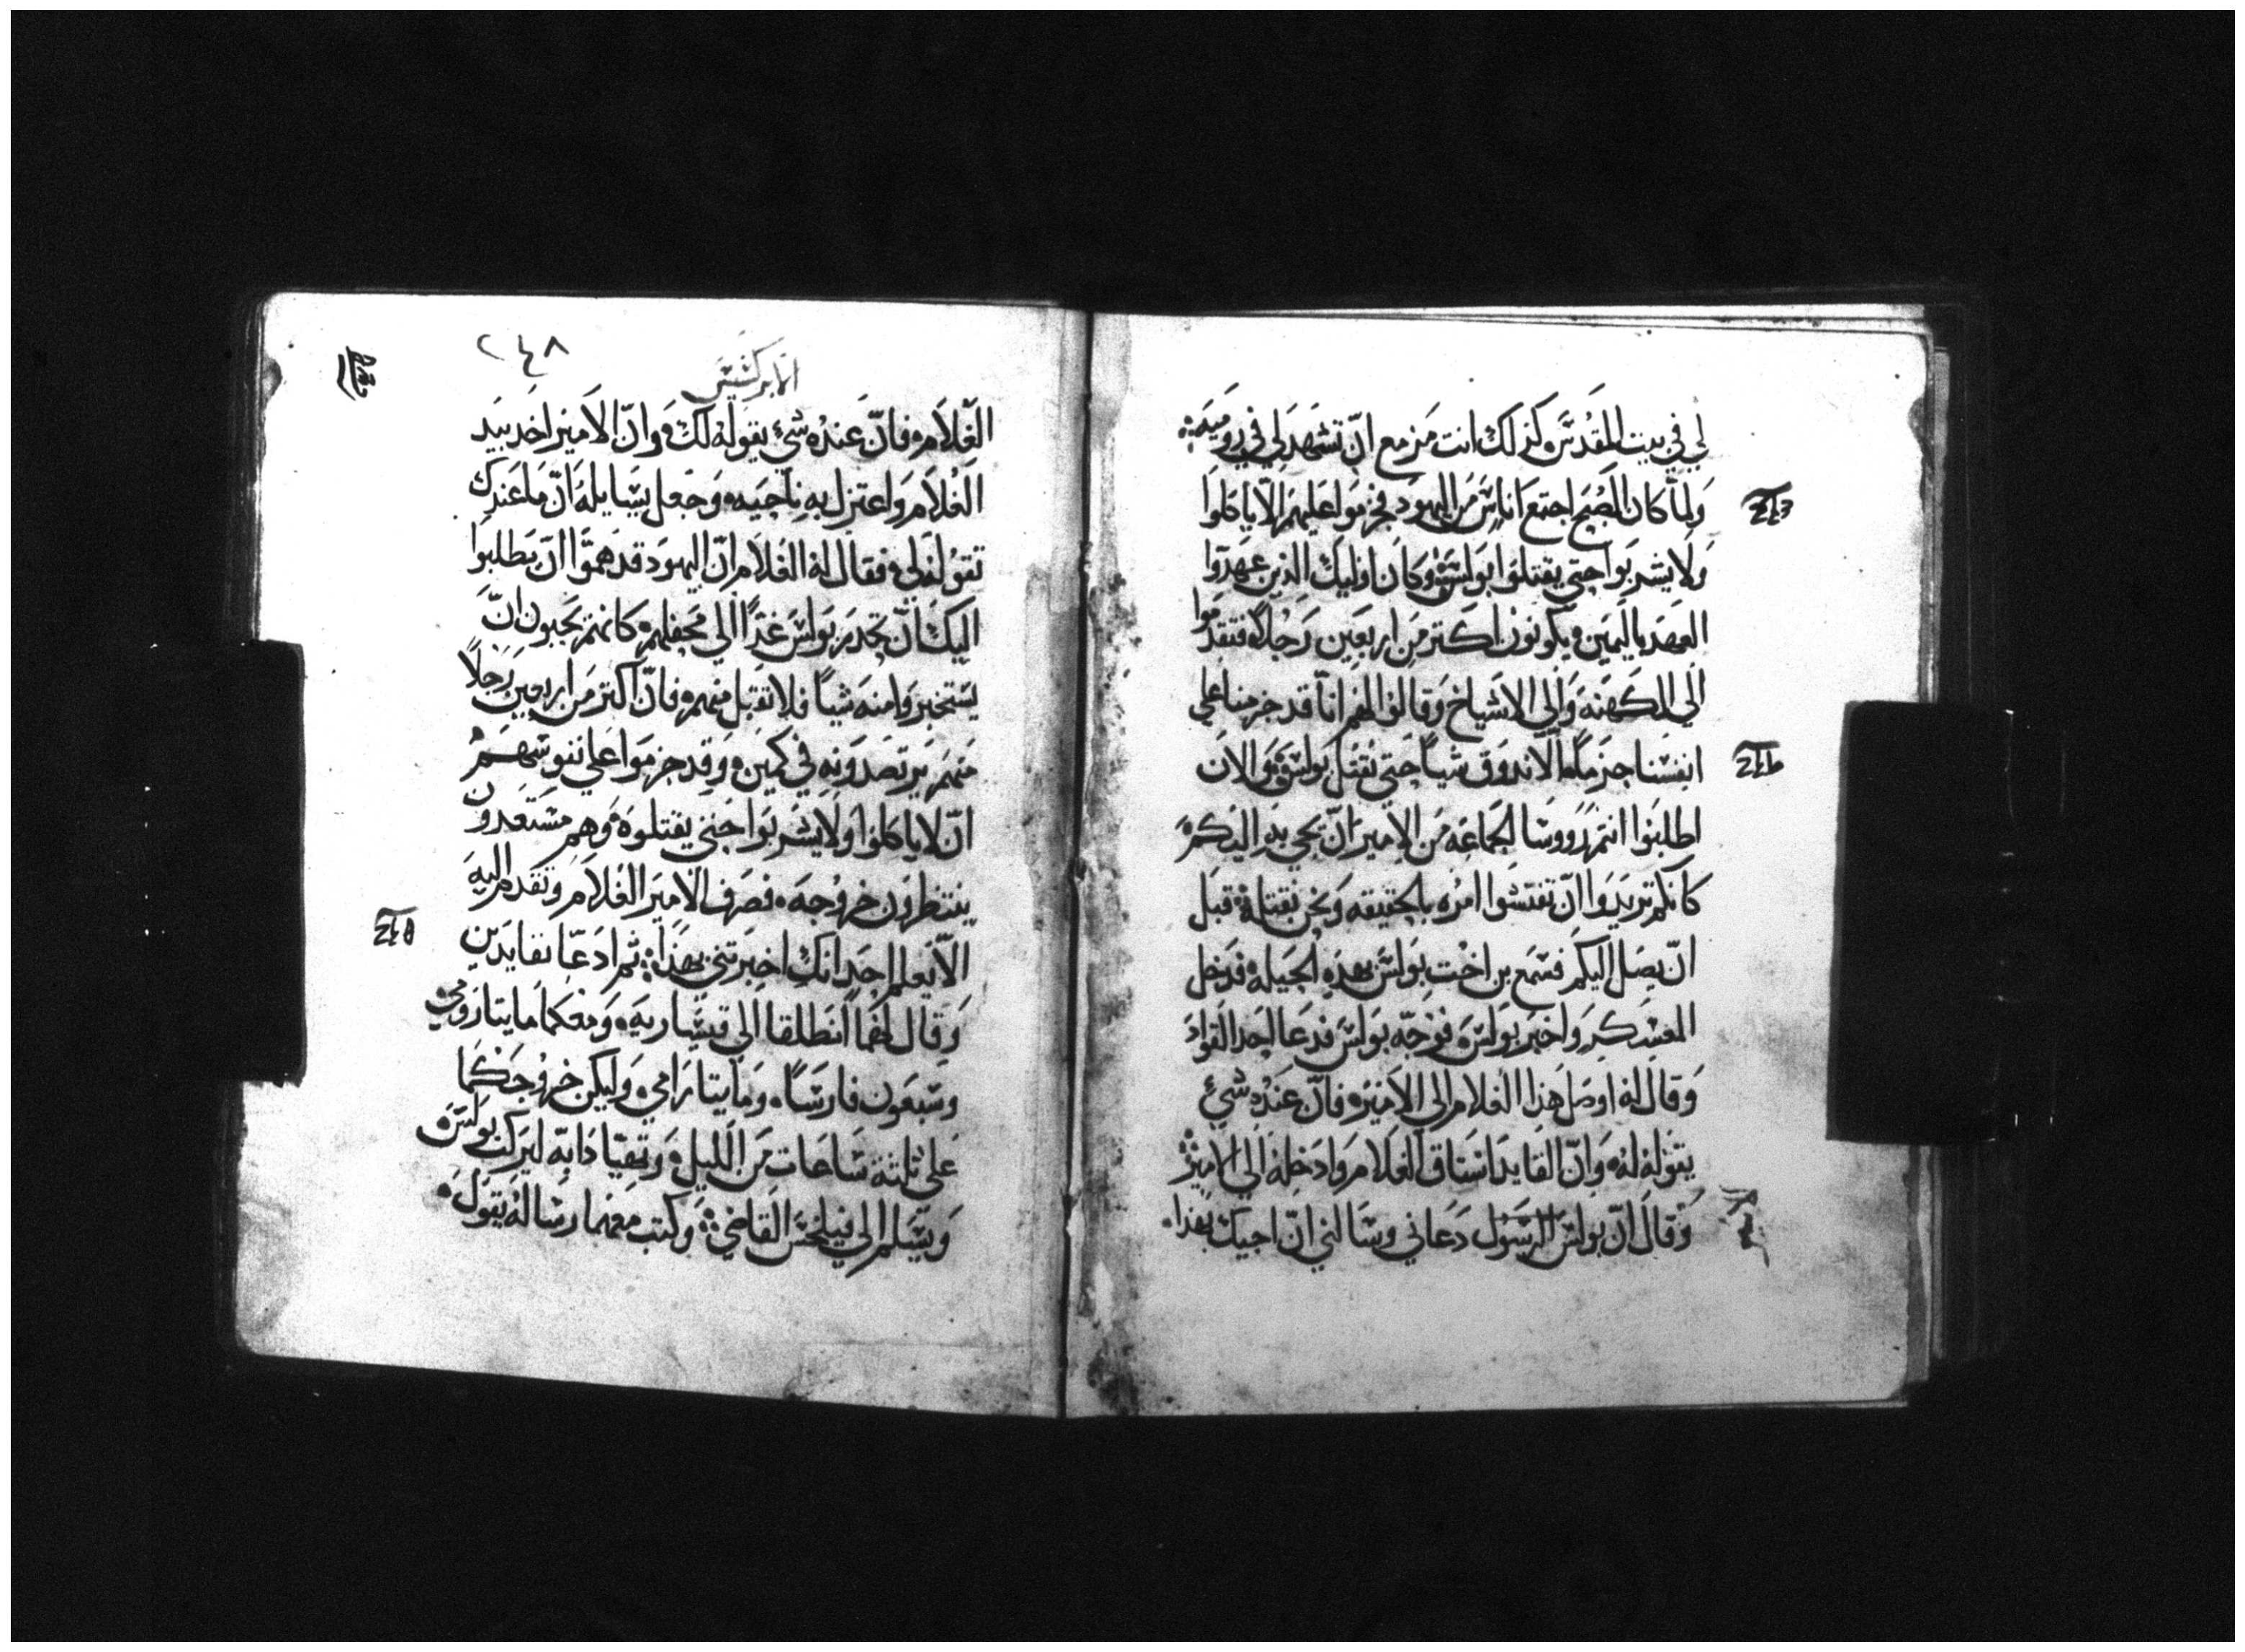 لي في بيت المقدس كذلك انت مزمع ان تشهد لي في روميه
ولما كان الصبح اجتمع اناس من اليهود فجزموا عليهم الا ياكلوا
ولا يشربوا حتي يقتلوا بولس وكان اوليك الذين عهدوا
العهد باليمين يكونون اكتر من اربعين رجلا فتقدموا
الي الكهنه والي الاشياخ وقالوا لهم انا قد جزمنا علي
انفسنا جزما الا ندوق شيا حتي نقتل بولس والان
اطلبوا انتم ورووسا الجماعه من الامير ان يجي به اليكم
كانكم تريدوا ان تفتشوا امره بالحقيقه ونحن نقتله قبل
ان يصل اليكم فسمع بن اخت بولس بهده الحيله فدخل
المعسكر واخبر بولس فوجه بولس فدعا احد القواد
وقال له اوصل هذا الغلام الي الامير فان عنده شي
يقوله له وان القايد استاق الغلام وادخله الي الامير
وقال ان بولس الرسول دعاني وسالني ان اجيك بهذا
٢٤٨
ابركسيس
الغلام فان عنده شي يقوله لك وان الامير اخد بيد
الغلام واعتزل به ناحيه وجعل يسايله ان ما عندك
تقوله لي فقال له الغلام ان اليهود قد هموا ان يطلبوا
اليك ان تحدر بولس غدا الي محفلهم كانهم يحبون ان
يستخبروا منه شيا فلا تقبل منهم فان اكتر من اربعين رجلا
منهم يرتصدونه في كمين وقد جزموا علي نفوسهم
ان لا ياكلوا ولا يشربوا حتي يقتلوه وهم مستعدون
ينتظرون خروجه فصرف الامير الغلام وتقدم اليه
الا يعلم احد انك اخبرتني بهذا ثم ادعا بقايدين
وقال لهما انطلقا الي قيساريه ومعكما مايتا رومي
وسبعون فارسا ومايتا رامي وليكن خروجكما
علي ثلثة ساعات من الليل وتهيا دابه ليركب بولس
ويسلم الي فيلكس القاضي وكتب معهما رساله يقول